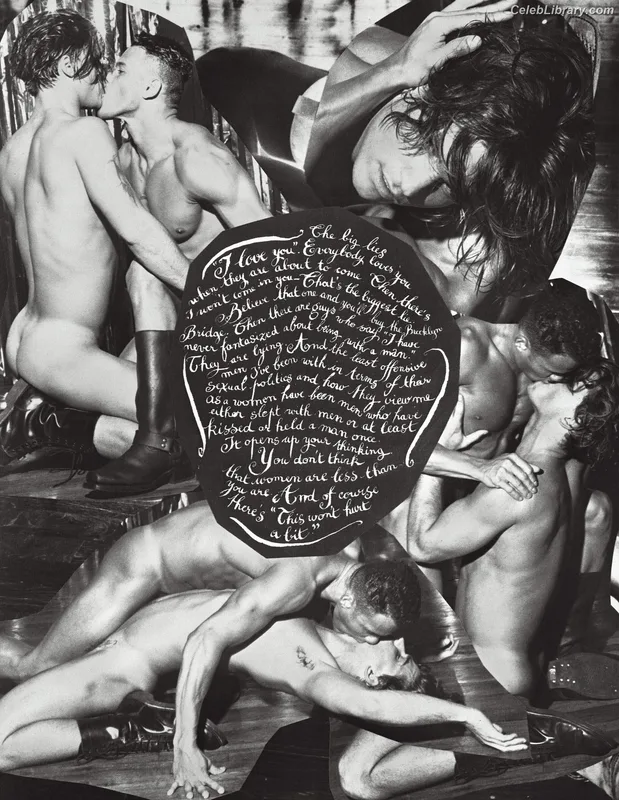 CelebLibrary.com
The big lies
"I love you". Everybody loves you
when they are about to come Then there's
"I won't come in you—That's the biggest lie
Believe that one and you'll buy the Brooklyn
Bridge. Then there are guys who say "I have
never fantasized about being with a man."
They are lying. And the least offensive
men I've been with in terms of their
sexual politics and how they view me
as a woman have been men who have
either slept with men or at least
kissed or held a man once
It opens up your thinking
You don't think
that women are less than
you are And of course
there's "This won't hurt
a bit."